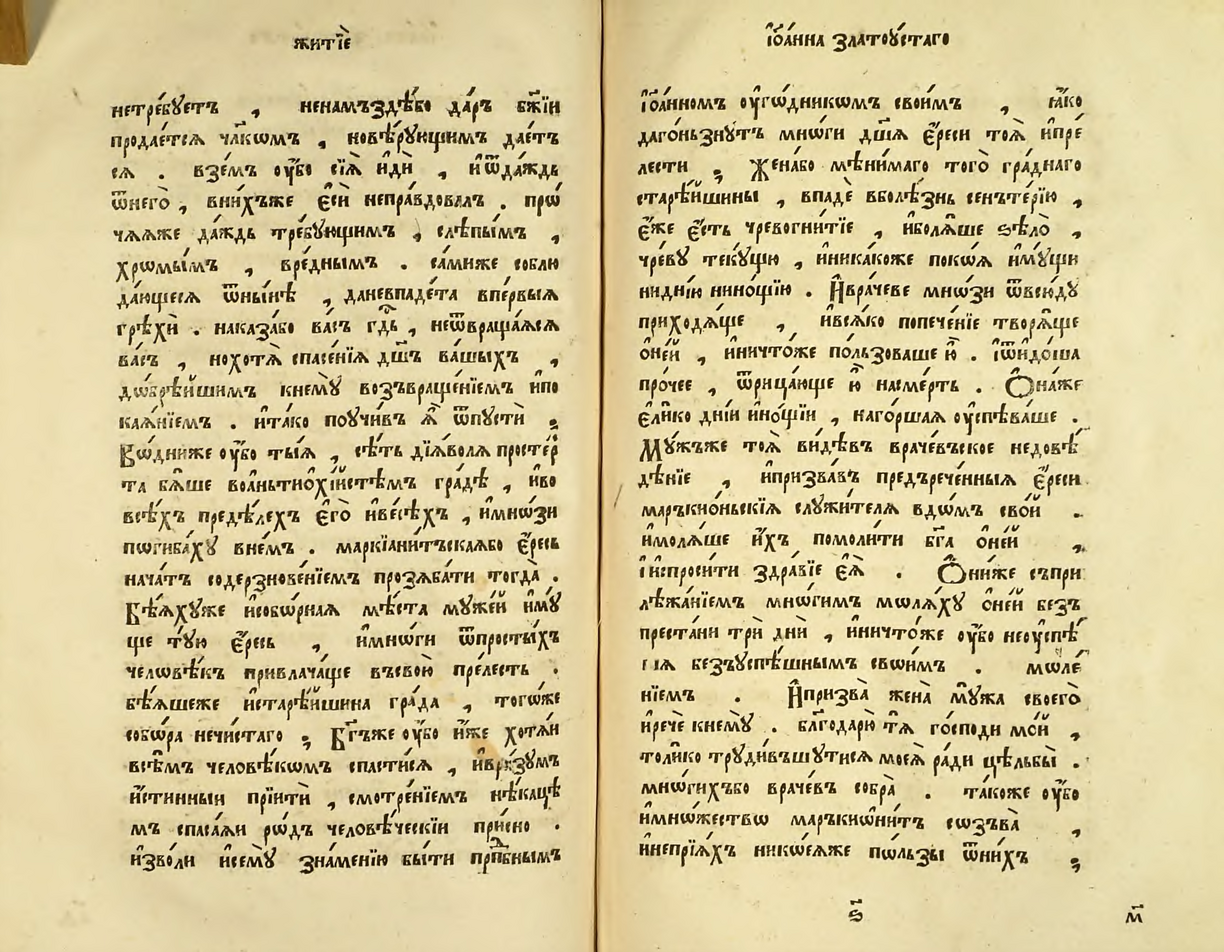 житїѐ
нетре́бꙋетъ , ненамъздѣ́бо да́ръ бж҃їи
продае́тсѧ чл҃кѡмъ , новѣ́рꙋющимъ дае́тъ
сѧ . взе́мъ ᲂу҆̀бо сїѧ̀ идѝ , иѿда́ждь
ѿнего̀ , вни́хъже є҆сѝ непра́вдовалъ . прѡ́
чѧѧже да́ждь тре́бꙋющимъ , слѣпы́мъ ,
хрѡмы́мъ , вре́днымъ . са́миже соблю
да́ющесѧ ѿны́нѣ , даневпаде́та впе́рвыѧ
грѣхѝ . наказа́бо ва́съ гд҇ь , неѿвраща́ѧсѧ
ва́съ , нохотѧ̀ спасе́нїѧ дш҃ъ ва́шыхъ ,
дѡбрѣ́йшимъ кнемꙋ̀ возъвраще́нїемъ ипо
каѧ́нїемъ . ита́ко поꙋчи́въ ѧ҆̀ ѿпꙋстѝ ;
Вѡ́дниже ᲂу҆́бо ты́ѧ , сѣ́ть дїѧ́волѧ просте́р
та бѧ́ше воа́ньтиохі́йстѣмъ гра́дѣ , иво
всѣ́хъ предѣ́лехъ є҆гѡ̀ иве́сѣхъ , имно́зи
пѡгиба́хꙋ вне́мъ . маркїани́тъскаѧбо є҆́ресь
нача́тъ содерзнове́нїемъ прозѧба́ти тогда̀ .
Бѣ́ѧхꙋже исобѡ́рнаѧ мѣ́ста мꙋже́й и҆мꙋ́
ще тꙋ́ю є҆́ресь , имнѡ́ги ѿпросты́хъ
человѣ́къ привлача́ще въсвою̀ пре́лесть .
бѣ́ѧшеже истарѣ́йшина гра́да , тогѡ́же
собѡ́ра нечи́стаго ; Бг҃ъже ᲂу҆̀бо и҆́же хотѧ́и
всѣ́мъ человѣ́кѡмъ спасти́сѧ , ивра́зꙋмъ
и҆́стинныи прїитѝ , смотре́нїемъ нѣ́кацѣ
мъ спаса́ѧи рѡ́дъ человѣ́ческїи при́сно .
изво́ли исемꙋ̀ зна́менїю бы́ти прпⷣбнымъ
і҆ѡа́нна златоꙋ́стаго
і҆ѡа́нномъ ᲂу҆го́дникѡмъ свои́мъ , ꙗ҆́ко
даго́ньзнꙋтъ мнѡ́ги дш҃ѧ є҆́реси тоѧ̀ ипре́
лести ; Жена́бо мѣни́маго того̀ гра́днаго
старѣ́йшины , впадѐ вболѣ́знь сенътє́рїю ,
є҆́же є҆́сть чревогни́тїе , иболѧ́ше ѕѣлѡ̀ ,
чре́вꙋ текꙋ́щю , иника́коже поко́ѧ и҆мꙋ́щи
нидні́ю нино́щїю . И҆вра́чеве мно́зи ѿвсю́дꙋ
приходѧ́ще , ивсѧ́ко попече́нїе творѧ́ще
о҆не́й , иничто́же по́льзоваше ю҆̀ . їѿидо́ша
про́чее , ѿрица́юще ю҆̀ насме́рть . О҆на́же
є҆ли́ко дні́й ино́щїи , наго́ршаѧ ᲂу҆спѣва́ше .
Мꙋ́жъже тоѧ̀ ви́дѣвъ враче́въское недовѣ́
дѣнїе , ипризва́въ предърече́нныѧ є҆́реси
маръкио́ньскїѧ слꙋжи́телѧ вдо́мъ сво́й .
имолѧ́ше и҆́хъ помоли́ти бг҃а о҆не́й ,
ииспроси́ти здра́вїе є҆ѧ̀ . О҆ни́же съпри
лѣжа́нїемъ мно́гимъ молѧ́хꙋ о҆не́й безъ
преста́ни трѝ дни̑ , иничто́же ᲂу҆́бо неꙋспѣ́
ша безъꙋспѣ́шнымъ свои́мъ . моле́
нїемъ . И҆призва̀ жена̀ мꙋ́жа своего̀
иречѐ кнемꙋ̀ . благодарю̀ тѧ̀ го́споди мо́й ,
толи́ко трꙋди́въшꙋтисѧ моеѧ̀ ра́ди цѣльбы̀ .
мно́гихъбо враче́въ собра̀ . та́коже ᲂу҆́бо
имно́жество маръкиѡни́тъ созъва̀ ,
инепрїѧ́хъ никое́ѧже по́льзы ѿни́хъ ;
ѕ҃і
м҃